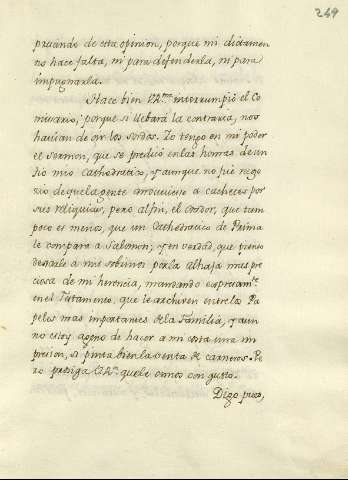 249
preciando de esta opinion, porque mi dictamen
no hace falta, ni para defenderla, ni para
impugnarla.
Hace bien V.R.ma interrumpiò el Co
misario; porque si llebára la contraria, nos
havian de oir los sordos. Yo tengo en mi poder
el sermon, que se predicò en las honras de un
tio mio Cathedratico, y aunque no fuè nego
cio de que la gente anduviesse a cachetes por
sus reliquias, pero al fin, el Orador, que tam
poco es menos, que un Cathedratico de Prima
le compara a Salomòn; y en verdad, que pienso
dexarle a mis sobrinos por la alhaja mas pre
ciosa de mi herencia, mandando expresam.te
en el Testamento, que le archiven entre los Pa
peles mas importantes de la Familia, y aun
no estoy ageno de hacer a mi costa una im
presion, si pinta bien la venta de carneros. Pe
ro prosiga V.R.ma que le oimos con gusto.
Digo pues,